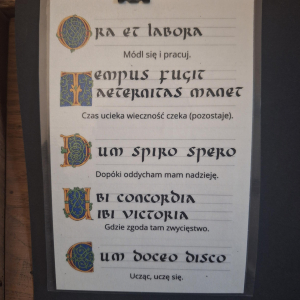 Ora et labora
Módl się i pracuj.
Tempus fugit
aeternitas manet
Czas ucieka wieczność czeka (pozostaje).
Dum spiro spero
Dopóki oddycham mam nadzieję.
Ubi concordia
ibi victoria
Gdzie zgoda tam zwycięstwo.
Cum doceo disco
Ucząc, uczę się.